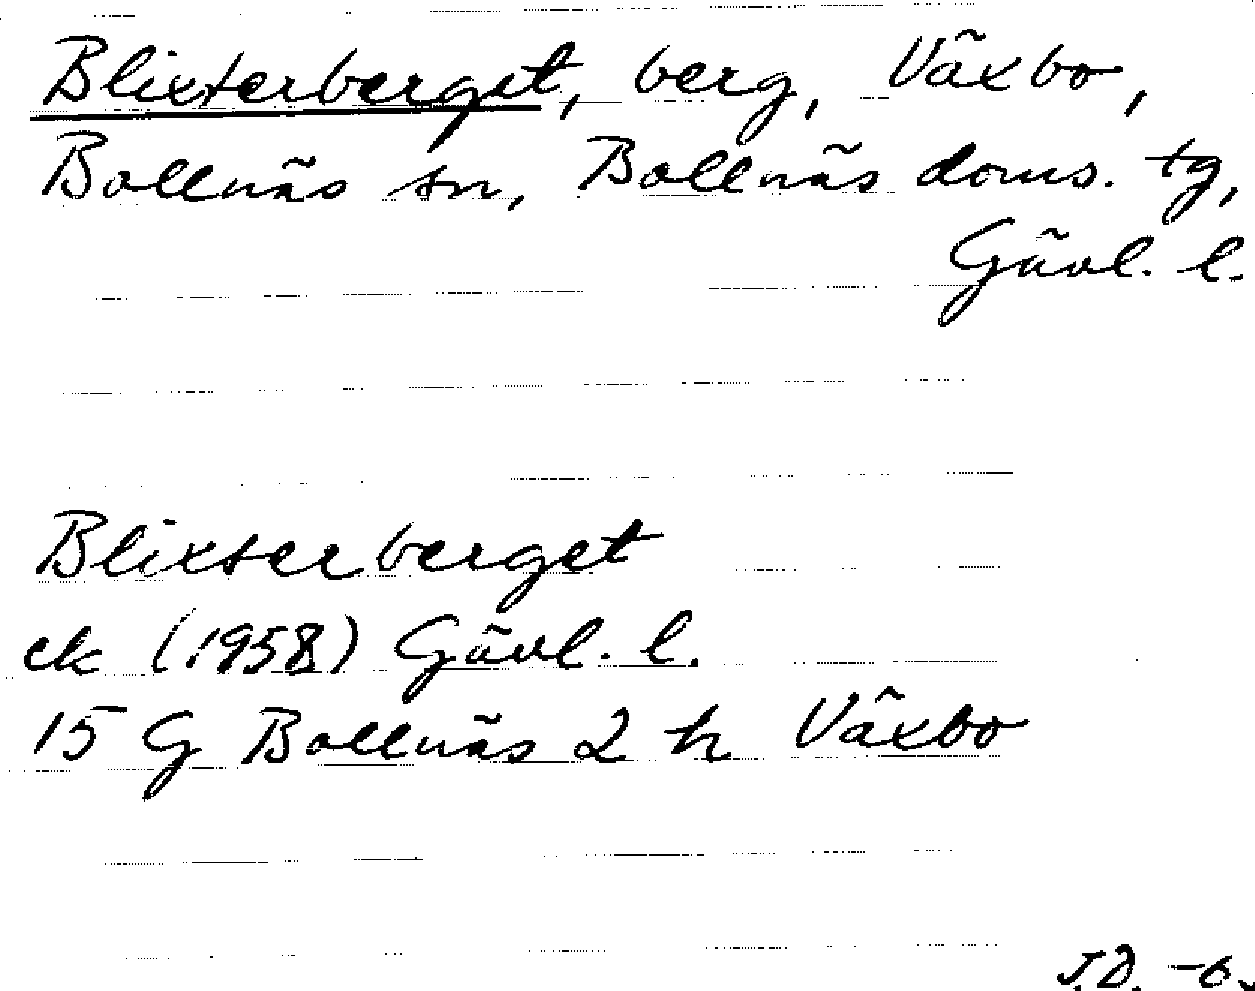 Blixterberget, berg, Växbo,
Bollnäs sn, Bollnäs doms. tg,
Gävl. l.
Blixterberget
ek (1958) Gävl. l.
15 G Bollnäs 2 h Växbo